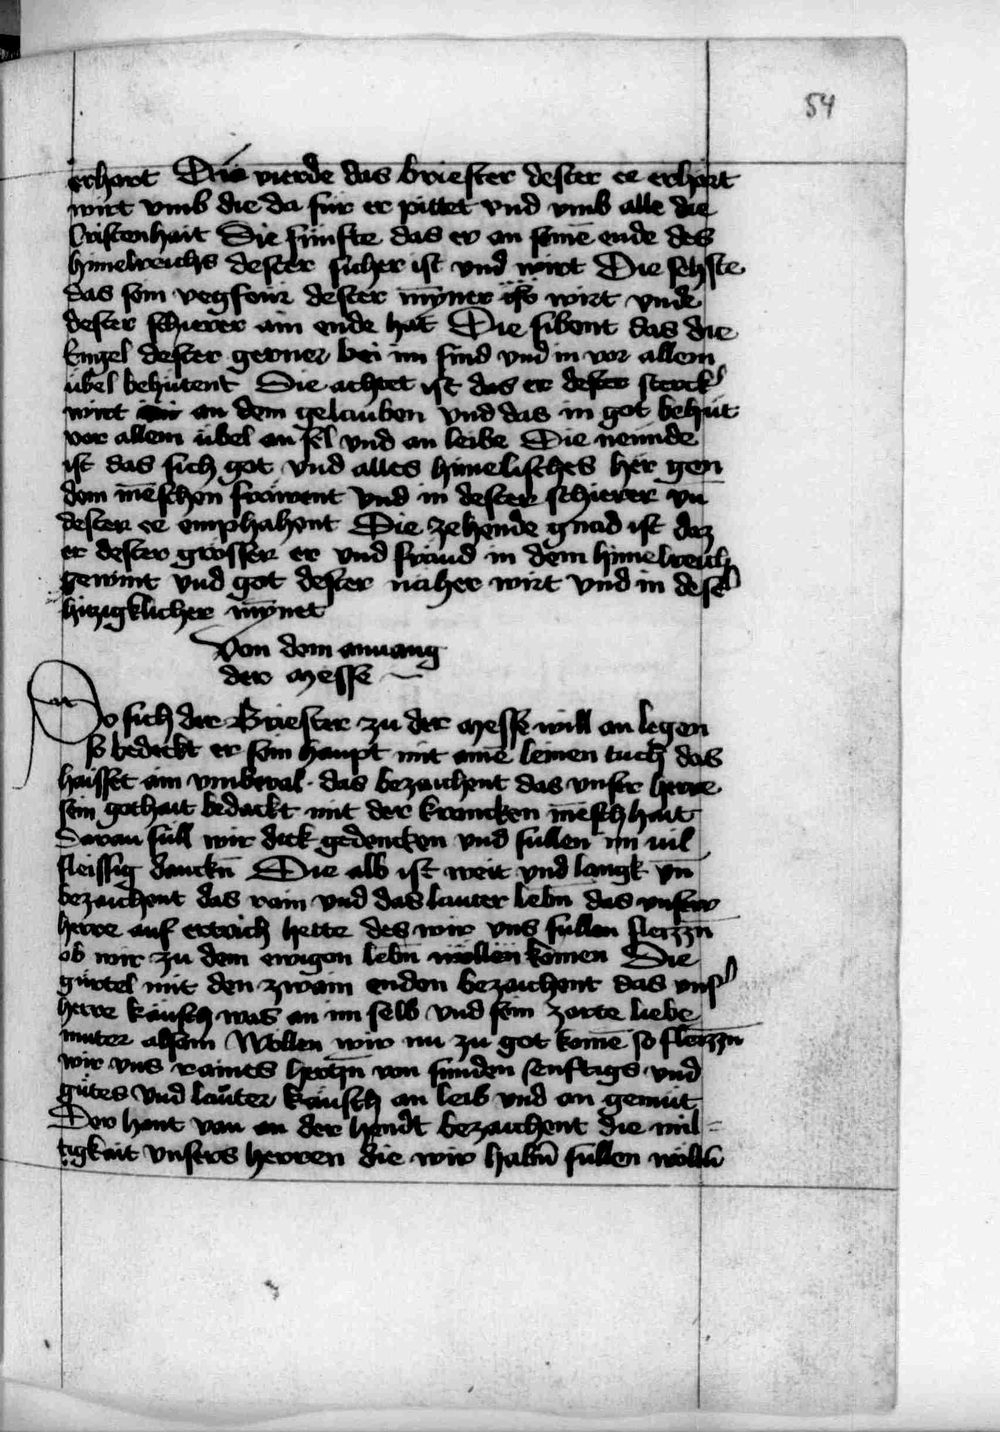 54
erhort Die vierde das briester dester ee erhört
wirt vmb die da für er pittet vnd vmb alle die
Cristenhait Die fünfte das er an seinē ende des
himelreichs dester sicher ist vnd wirt Die sehste
das sein vegfeür dester mȳner ist wirt vnde
dester schierer ain ende hat Die sibent das die
Engel dester gerner bei im sind vnd in vor allem
übel behütent Die achtet ist das er dester sterck
wirt an dem gelauben vnd das in got behüt
vor allem übel an sel vnd an leibe Die neünde
ist das sich got vnd alles himelisches her gen
dem mēschen fräwent vnd in dester schierer vn̄
dester ee emphahent Die zehende gnad ist daz
er dester grosser er vnd fräud in dem himelreich
gewint vnd got dester näher wirt vnd in des
hiczigklicher mȳnet
Von dem anuang
der messe
So sich der Briester zu der messe will an legen
so bedeckt er sein haupt mit aine leinen tuch das
haisset ain vmbral · das bezaichent das vnser herre
sein gothait bedackt mit der krancken mēschhait
Daran süll wir dick gedencken vnd süllen im vil
fleissig danckn̄ Die alb ist weit vnd langk vn̄
bezaichent das rain vnd das lauter lebn̄ das vnser
herre auf ertrich hette des wir vns süllen fleizzn̄
ob wir zu dem ewigen lebn̄ wöllen komen Die
gürtel mit den zwain enden bezaichent das vns
herre käusch was an im selb vnd sein zarte liebe
muter alsein Wöllen wir nu zu got komē so fleizzn̄
wir vns raines hertzn̄ von sunden senftigs vnd
gütes vnd lauter käusch an leib vnd an gemüt
Der hant van an der hendt bezaichent die mil=
tigkait vnsers herren die wir habn̄ süllen wölln̄